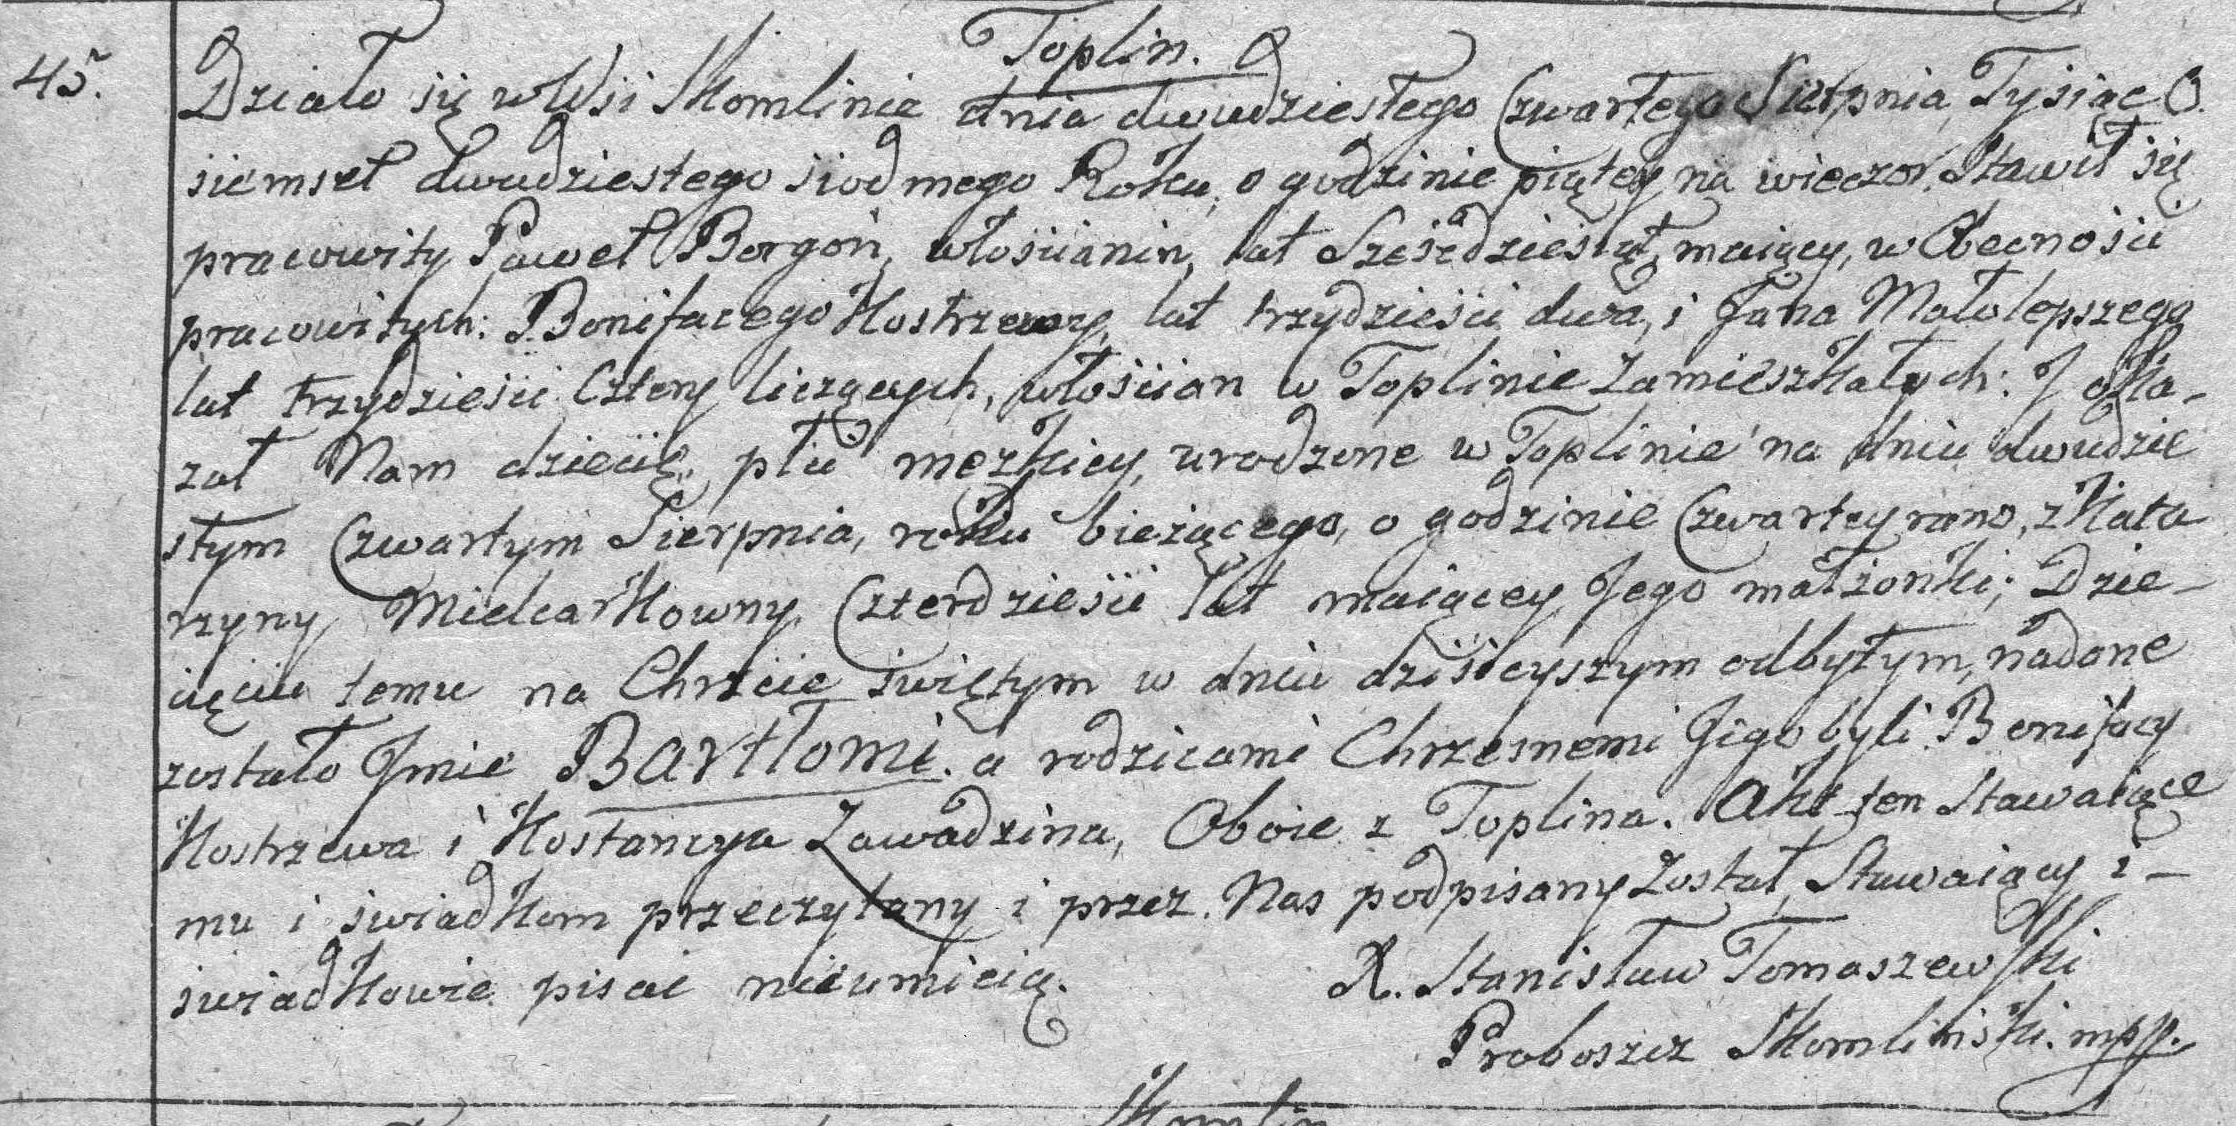 Toplin.
45. Działo się w Wsi Skomlinie dnia dwudziestego Czwartego Sierpnia, Tysiąc O.
siemset dwudziestego siodmego Roku, o godzinie piątey na wieczor. Stawił się
pracowity Paweł Borgoń, włościanin, lat Sześćdziesiąt, maiący, w Obecnosci
pracowitych: Bonifacego Kostrzewy, lat trzydzieści dwa, i Jana Małolepszego
lat trzydzieści Cztery liczących, włościan w Toplinie zamieszkałych: J oka-
zał Nam dziecię płci męzkiey, urodzone w Toplinie na dniu dwudzie
stym Czwartym Sierpnia, roku bieżącego, o godzinie Czwartey rano, z Kata
rzyny Mielcarkowny, Czterdzieści lat maiącey, Jego małżonki; Dzie-
cięciu temu na Chrzcie świętym w dniu dzisieyszym odbytym, nadane
zostało Jmie Bartłomi. a rodzicami Chrzesnemi Jego byli Bonifacy
Kostrzewa i Kostancya Zawadzina, Oboie z Toplina. Akt ten Stawaiące
mu i świadkom przeczytany i przez Nas podpisany został, Stawaiący i -
świadkowie pisać nieumieią.
X. Stanisław Tomaszewski
Proboszcz Skomliński. mpp.
Skomlin